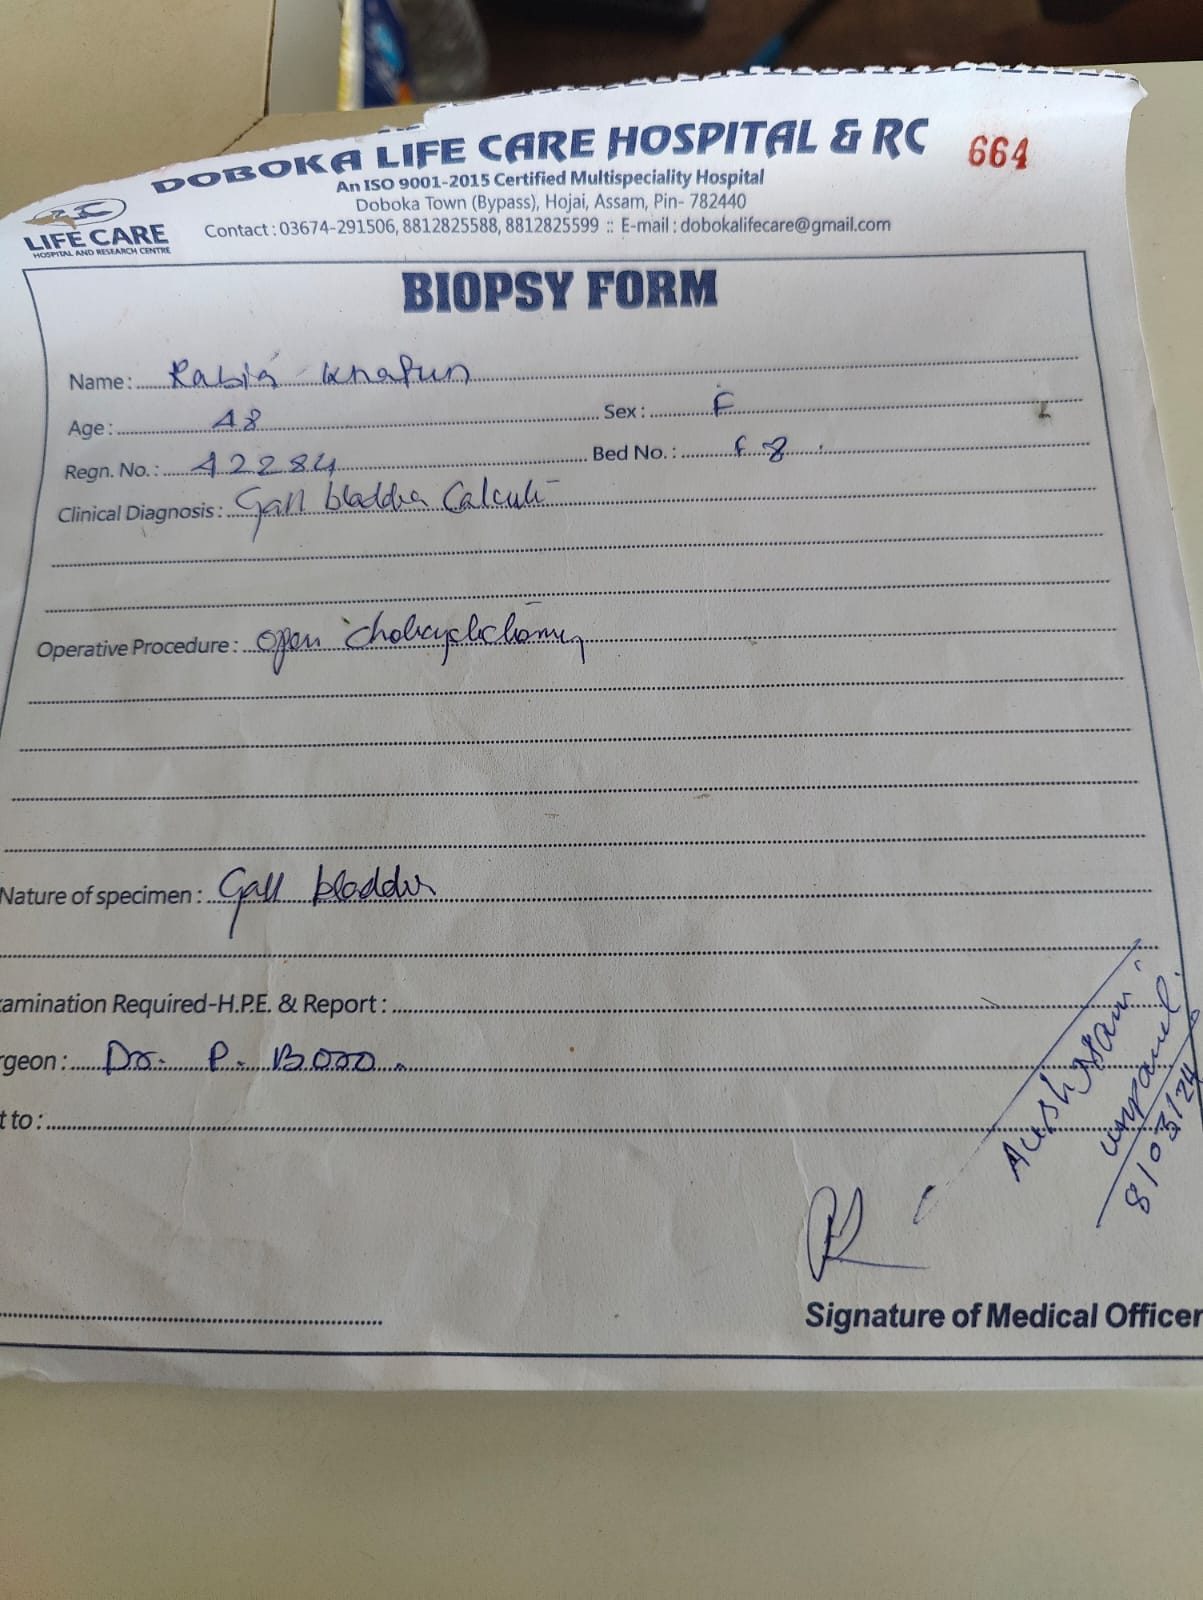 DOBOKA LIFE CARE HOSPITAL & RC 664
An ISO 9001-2015 Certified Multispeciality Hospital
Doboka Town (Bypass), Hojai, Assam, Pin- 782440
Contact : 03674-291506, 8812825588, 8812825599 :: E-mail : dobokalifecare@gmail.com
LIFE CARE
HOSPITAL AND RESEARCH CENTRE
BIOPSY FORM
Name: Rabia Khatun
Age: 48 Sex: F
Regn. No.: 42284 Bed No.: F 8
Clinical Diagnosis: Gall bladder Calculi
Operative Procedure: Open
Nature of specimen: Gall bladder
amination Required-H.P.E. & Report:
rgeon: Dr. P. Boro.
t to:
8/03/24
Signature of Medical Officer